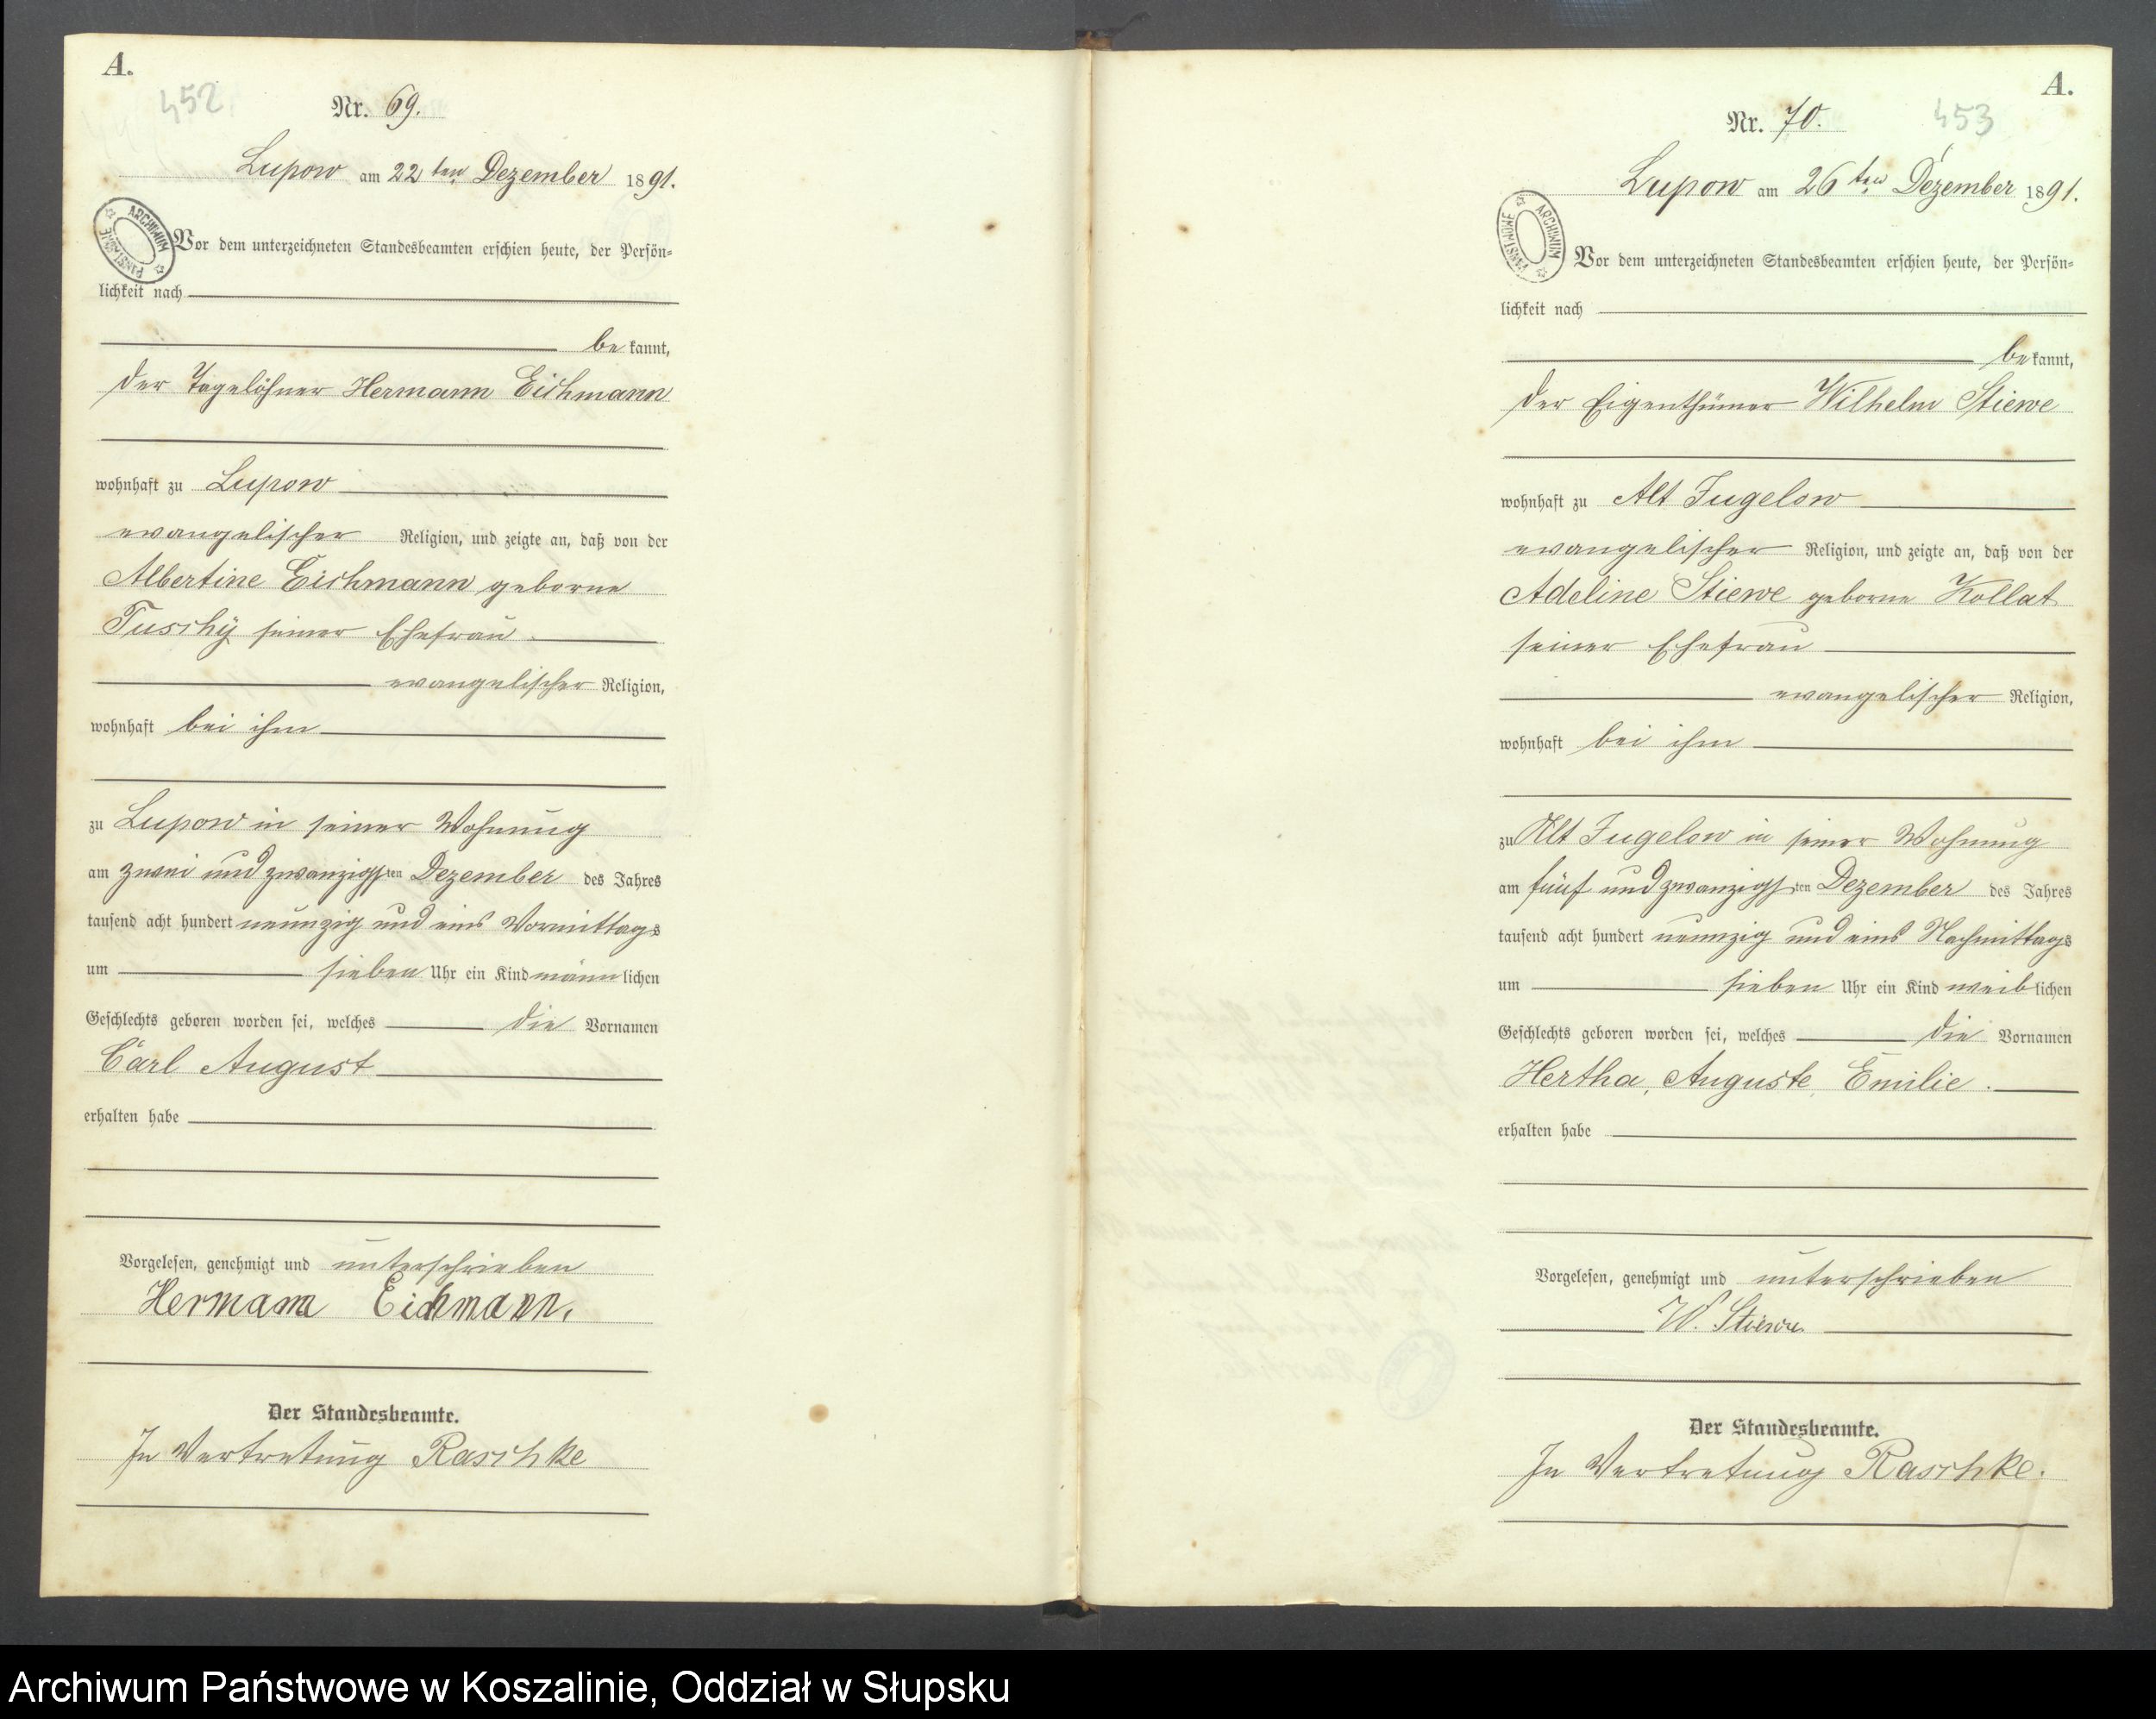 A.
452
Nr. 69.
Lupow am 22ten Dezember 1891.
ARCHIWUM PAŃSTWOWE
Vor dem unterzeichneten Standesbeamten erschien heute, der Persön=
lichkeit nach
be kannt,
der Tagelöhner Hermann Eichmann
wohnhaft zu Lupow
evangelischer Religion, und zeigte an, daß von der
Albertine Eichmann geborne
Tuschÿ seiner Ehefrau
evangelischer Religion,
wohnhaft bei ihm
zu Lupow in seiner Wohnung
am zwei und zwanzigsten Dezember des Jahres
tausend acht hundert neunzig und eins Vormittags
um sieben Uhr ein Kind männlichen
Geschlechts geboren worden sei, welches die Vornamen
Carl August
erhalten habe
Vorgelesen, genehmigt und unterschrieben
Hermann Eichmann.
Der Standesbeamte.
In Vertretung Raschke
A.
453
Nr. 70.
Lupow am 26ten Dezember 1891.
ARCHIWUM PAŃSTWOWE
Vor dem unterzeichneten Standesbeamten erschien heute, der Persön=
lichkeit nach
be kannt,
der Eigenthümer Wilhelm Stiewe
wohnhaft zu Alt Jugelow
evangelischer Religion, und zeigte an, daß von der
Adeline Stiewe geborne Kollat
seiner Ehefrau
evangelischer Religion,
wohnhaft bei ihm
zu Alt Jugelow in seiner Wohnung
am fünf und zwanzigsten Dezember des Jahres
tausend acht hundert neunzig und eins Nachmittags
um sieben Uhr ein Kind weiblichen
Geschlechts geboren worden sei, welches die Vornamen
Hertha, Auguste, Emilie.
erhalten habe
Vorgelesen, genehmigt und unterschrieben
W. Stiewe
Der Standesbeamte.
In Vertretung Raschke.
Archiwum Państwowe w Koszalinie, Oddział w Słupsku